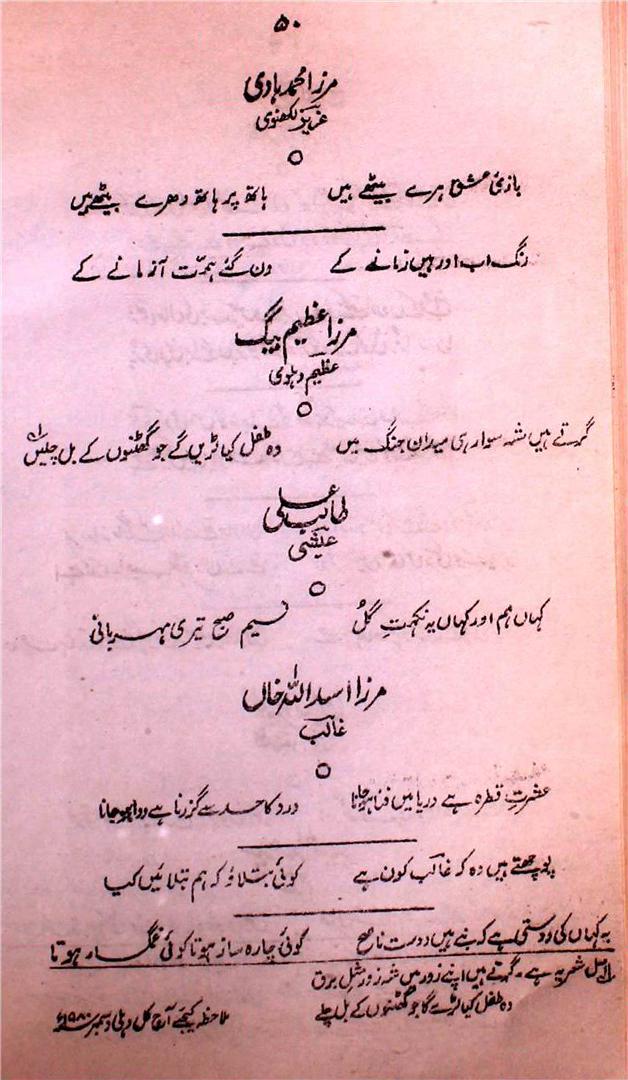 ۵۰
مرزا محمد ہادی
عزیز لکھنوی
بازئ عشق ہرے بیٹھے ہیں ہاتھ پر ہاتھ دھرے بیٹھے ہیں
رنگ اب اور ہیں زمانے کے دن گئے ہمّت آزمانے کے
مرزا عظیم بیگ
عظیم دہلوی
گرتے ہیں شہ سوار ہی میدانِ جنگ میں وہ طفل کیا لڑیں گے جو گھٹنوں کے بل چلیں (۱)
طالب علی
عیشی
کہاں ہم اور کہاں یہ نکہتِ گُل نسیم صبح تیری مہربانی
مرزا اسد اللہ خاں
غالب
عشرتِ قطرہ ہے دریا میں فنا ہو جانا درد کا حد سے گزرنا ہے دوا ہو جانا
پوچھتے ہیں وہ کہ غالب کون ہے کوئی بتلاؤ کہ ہم بتلائیں کیا
یہ کہاں کی دوستی ہے کہ بنے ہیں دوست ناصح کوئی چارہ ساز ہوتا کوئی غمگسار ہوتا
اصل شعر یہ ہے۔ گرتے ہیں اپنے زور میں شہ زور مثل برق
وہ طفل کیا لڑے گا جو گھٹنوں کے بل چلے ملاحظہ کیجئے آج کل دہلی دسمبر ۱۹۸۰ء